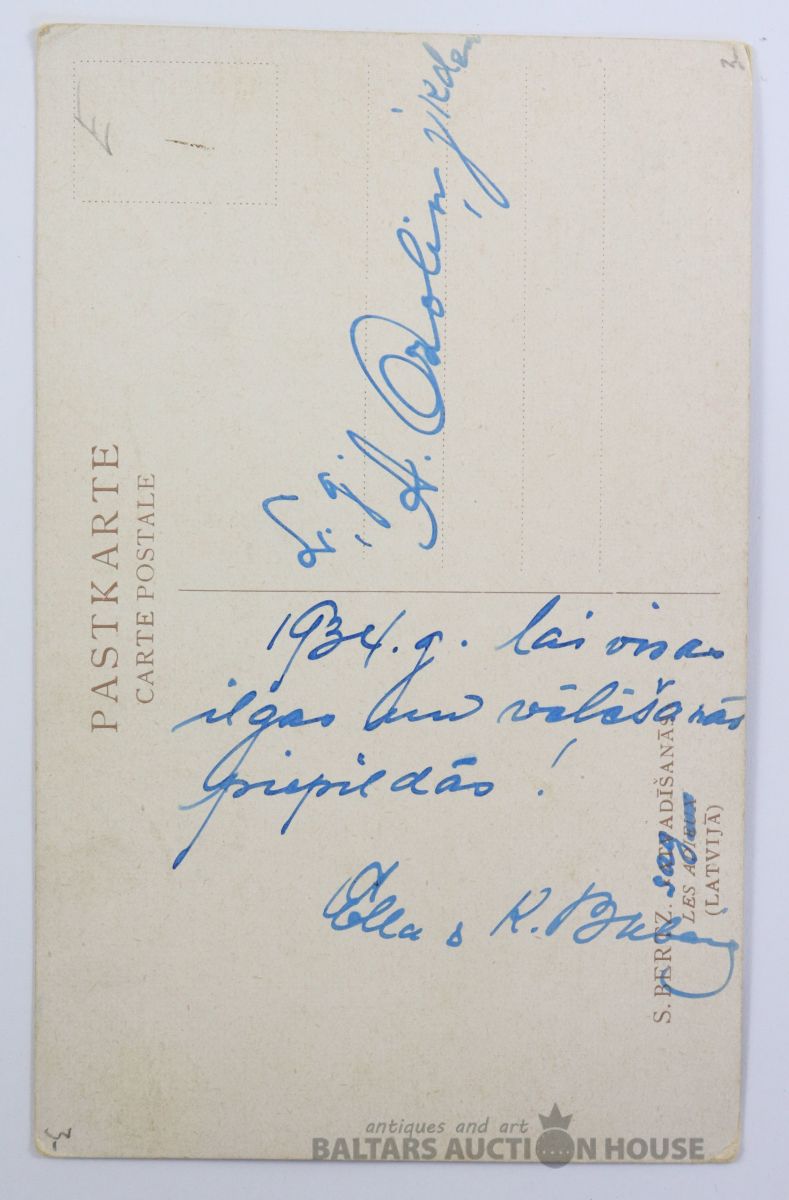 PASTKARTE
CARTE POSTALE
L. g.
A. Ozolin jkdze
1934. g. lai visas
ilgas un vēlēšanās
piepildās!
Ella & K.
S. BERTZ. ATVADĪŠANĀS
LES ADIEUX
(LATVIJĀ)
E
3
3
antiques and art
BALTARS AUCTION HOUSE